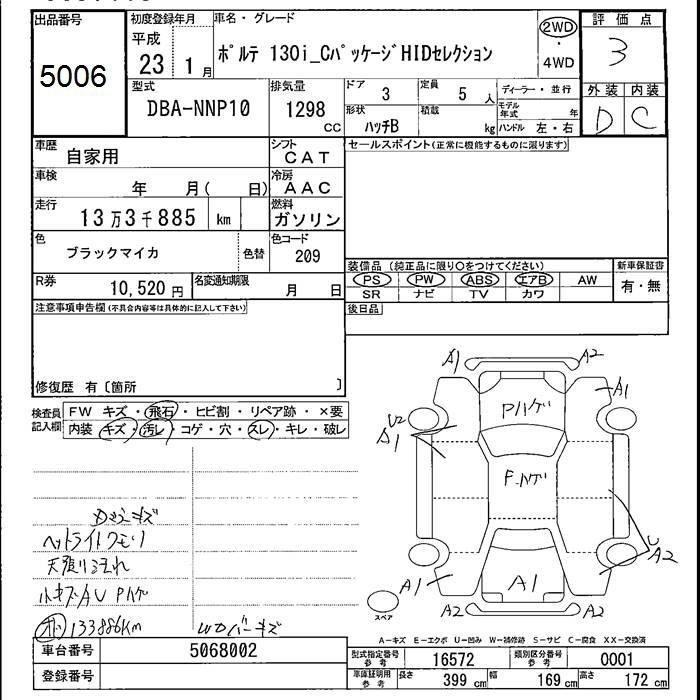 出品番号
5006
初度登録年月
平成
23 1月
車名・グレード
ポルテ 130i_CパッケージHIDセレクション
2WD
・
4WD
評価点
3
型式
DBA-NNP10
排気量
1298
CC
ドア 3
定員 5 人
形状
ハッチB
積載
kg
ディーラー・並行
モデル年式 年
ハンドル 左・右
外装 内装
D C
車歴
自家用
シフト
CAT
セールスポイント(正常に機能するものに限ります)
車検
年 月( 日)
冷房
AAC
走行
13万3千885 km
燃料
ガソリン
色
ブラックマイカ
色替
色コード
209
R券
10,520 円
名変通知期限
月 日
装備品(純正品に限り○をつけてください)
PS PW ABS エアB AW
SR ナビ TV カワ
新車保証書
有・無
後日品
注意事項申告欄(不具合内容等は具体的に記入して下さい)
修復歴 有〔箇所 〕
検査員記入欄
FW キズ・飛石・ヒビ割・リペア跡・×要
内装 キズ・汚レ・コゲ・穴・スレ・キレ・破レ
A1 A2
A1
Pハゲ
U2
A1
F.ハゲ
U
A2
A1
A1
A2 A2
スペア
ヘッドライトクモリ
天張り汚れ
小キズAU Pハゲ
133886km
A-キズ E-エクボ U-凹み W-補修跡 S-サビ C-腐食 XX-交換済
車台番号
5068002
登録番号
型式指定番号
参考
16572
類別区分番号
参考
0001
車庫証明用
参考
長さ 399 cm
幅 169 cm
高さ 172 cm